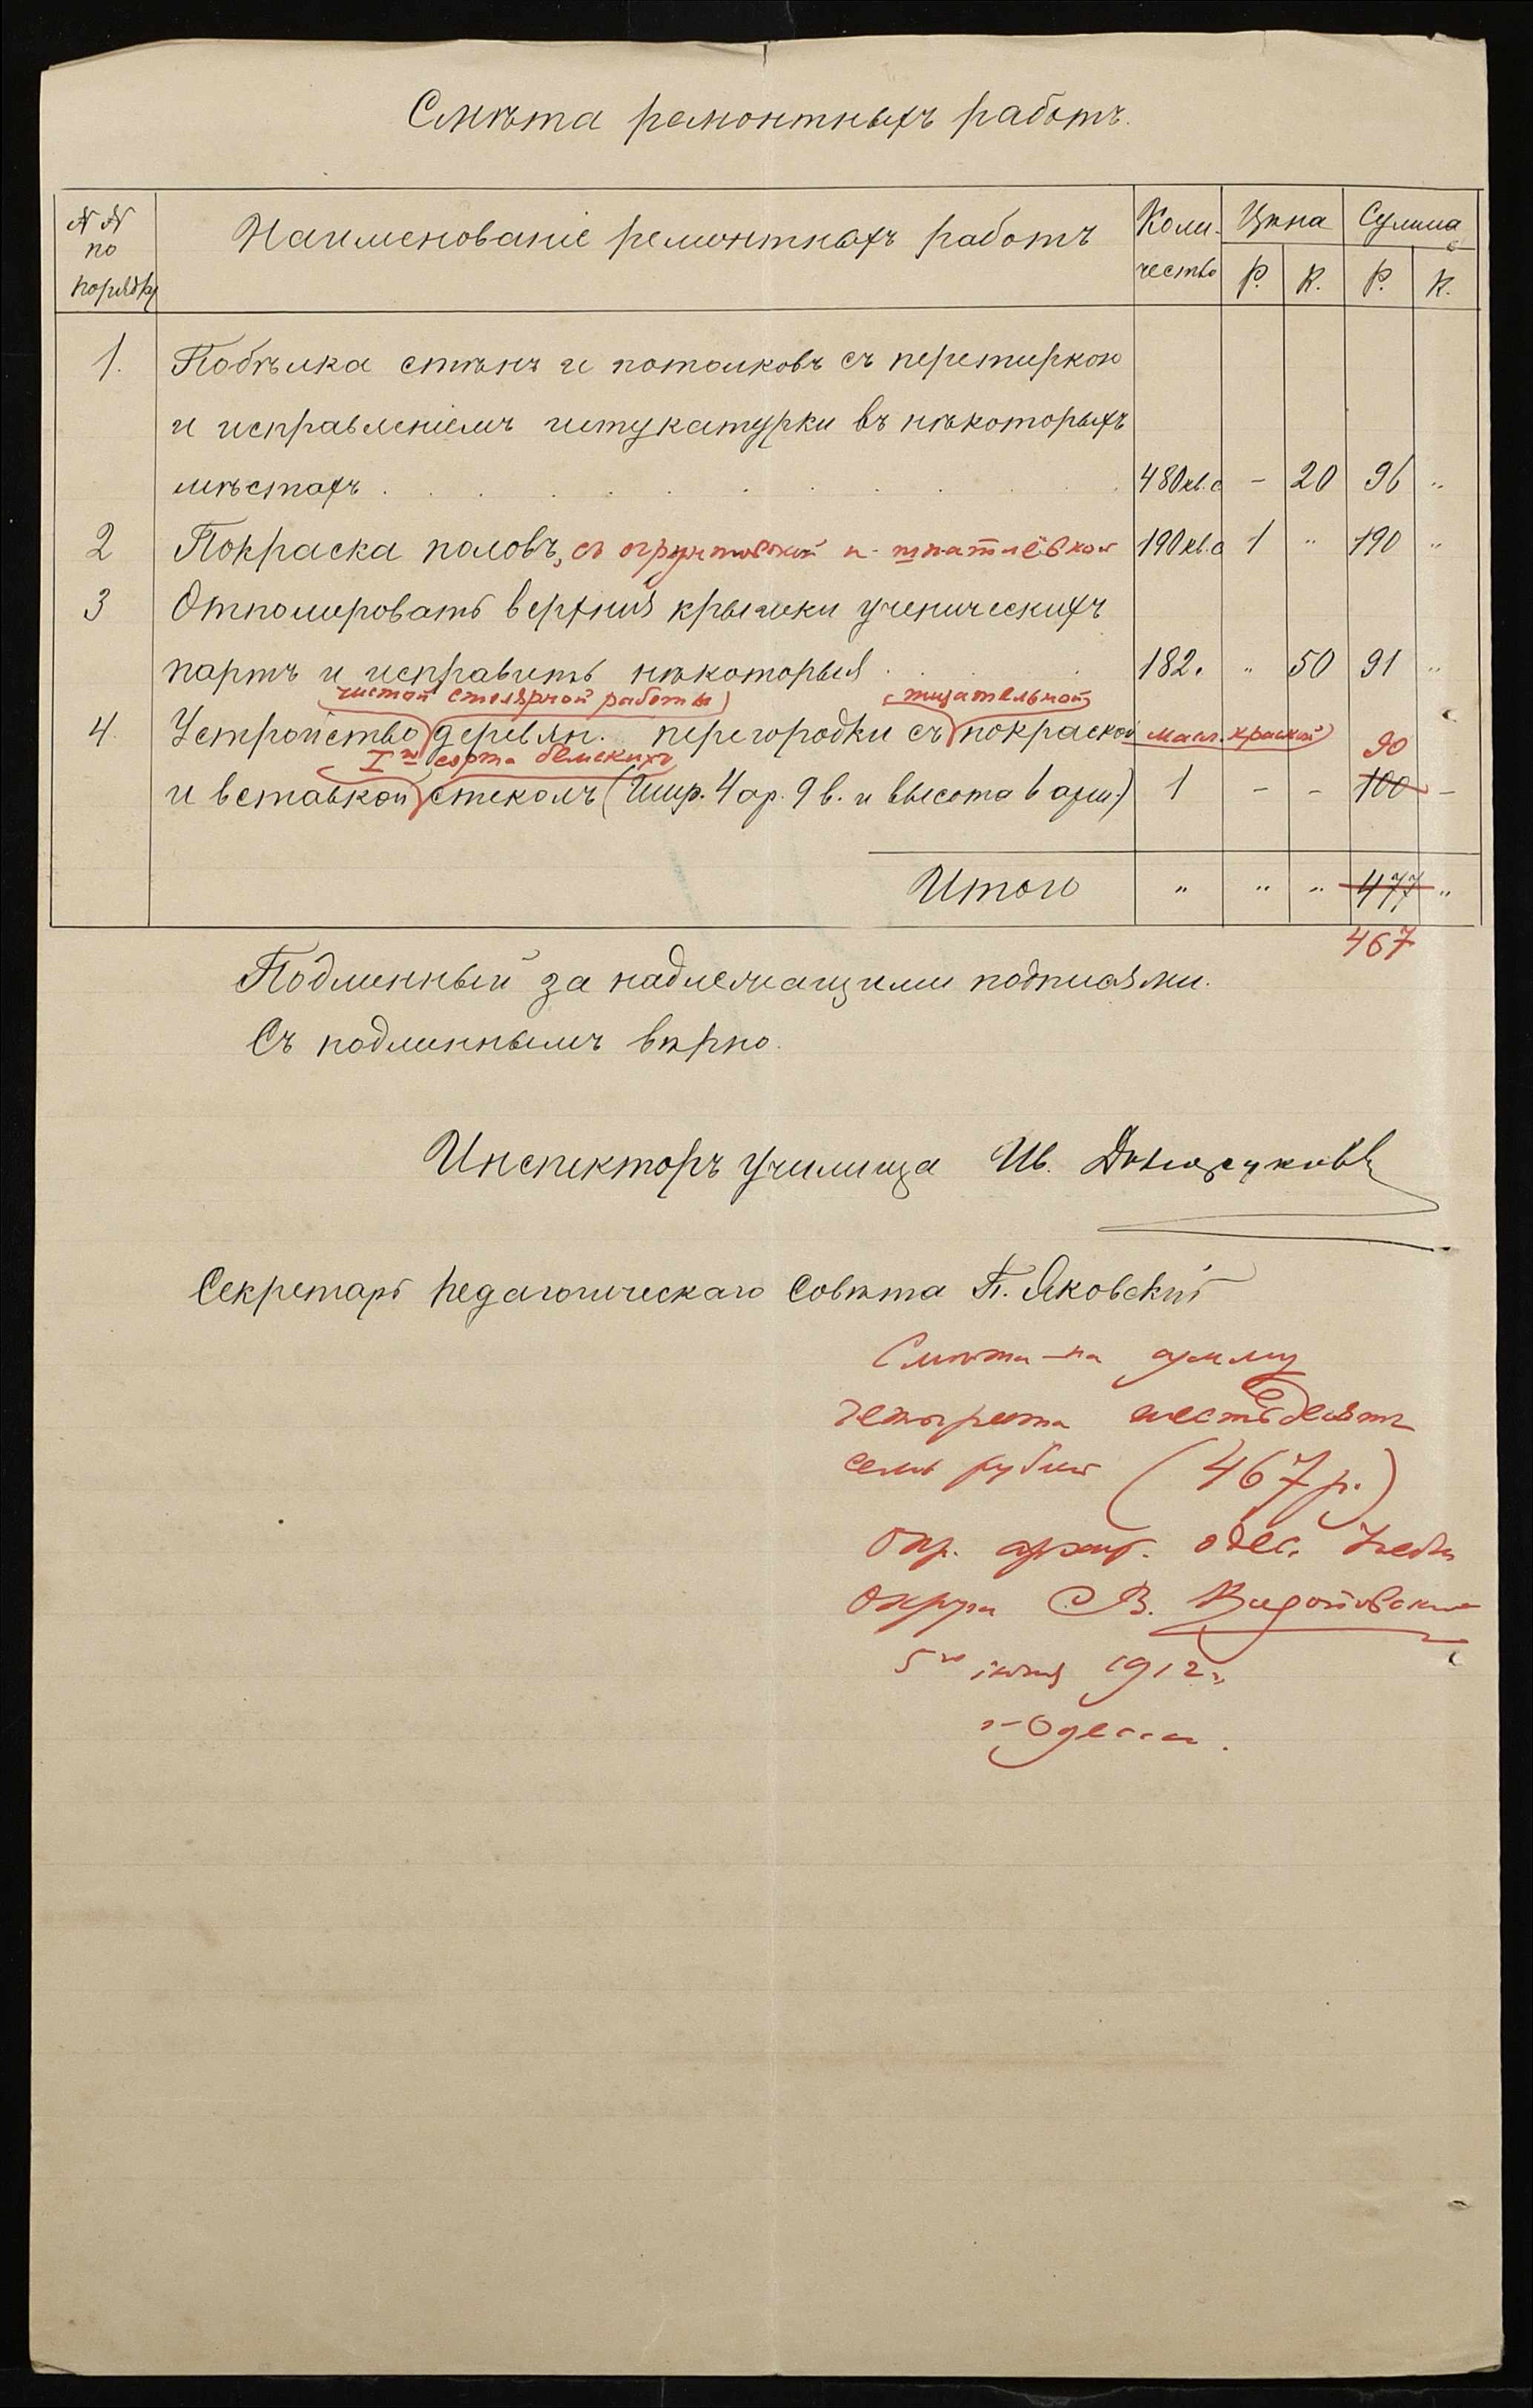 Смѣта ремонтныхъ работъ.
№№ по порядку
Наименованіе ремонтныхъ работъ
Количество
Цѣна
Сумма
Р. К. Р. К.
1. Побѣлка стѣнъ и потолковъ съ перетиркою
и исправленіемъ штукатурки въ нѣкоторыхъ
мѣстахъ . . . . . . . . . . 480 кв. с - 20 96 „
2 Покраска половъ, съ огрунтовкой и шпатлёвкой 190 кв. с 1 „ 190 „
3 Отполировать верхнія крышки ученическихъ
партъ и исправить нѣкоторыя . . . 182. „ 50 91 „
чистой столярной работы тщательной
4. Устройство деревян. перегородки съ покраской масл. краской 90
I го сорта бемскихъ
и вставкой стеколъ (Шир. 4 ар. 9 в. и высота 6 арш.) 1 - - 100 -
Итого „ „ „ 477 „
467
Подлинный за надлежащими подписями.
Съ подлиннымъ вѣрно.
Инспекторъ училища Ив.
Секретарь педагогическаго совѣта П. Яковскій
Смѣта на сумму
четыреста шестьдесятъ
семь рублей (467 р.)
Окр. архит. Одес. Учебн
Округа В.
5го 1912 г.
г. Одесса.